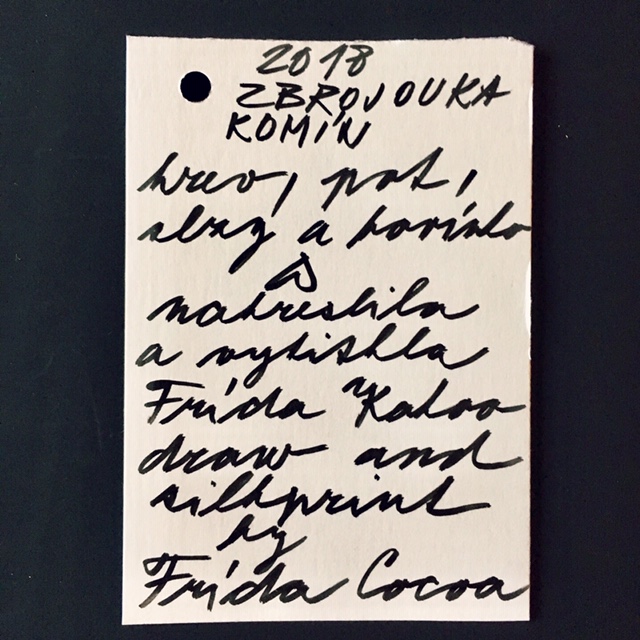 2018
ZBROJOVKA
KOMÍN
krev, pot,
slzy a hovínko
nakreslila
a vytiskla
Frída Kakao
draw and
silkprint
by
Frída Cocoa